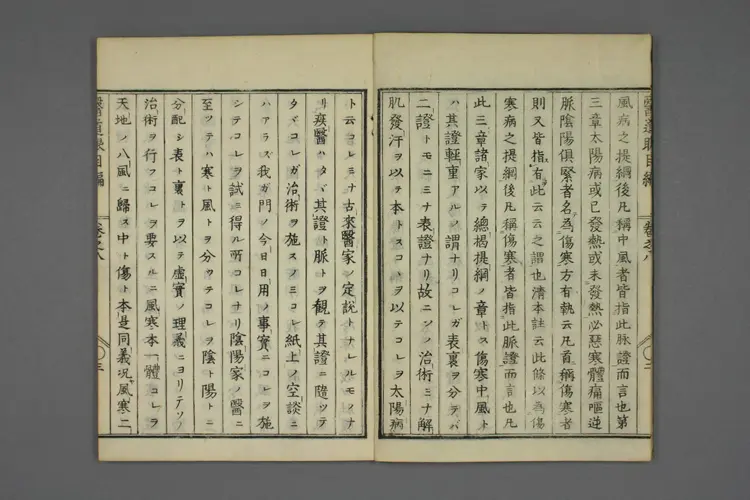 風病之提綱後凡稱中風者皆指此脉證而言也第
三章太陽病或已發熱或未發熱必惡寒體痛嘔逆
脉陰陽俱緊者名為傷寒方有執云凡首稱傷寒者
則又皆指有此云云之謂也清本註云此條以為傷
寒病之提綱後凡稱傷寒者皆指此脈證而言也凡
此三章諸家以テ總揭提綱ノ章トス傷寒中風ト
ハ其證軽重アルノ謂ナリコレガ表裏ヲ分テバ
二證トモニミナ表證ナリ故ニソノ治術ミナ解
肌發汗ヲ以テ本トスコヽヲ以テコレヲ太陽病
醫道眼目編 卷之八 〇二
ト云コレミナ古來醫家ノ定說トナレルモノナ
リ疾醫ハタヾ其證ト脉トヲ観テ其證ニ隨ツテ
タヾコレガ治術ヲ施スノミコレ紙上ノ空談ニ
ハアラズ我ガ門ノ今日日用ノ事實ニコレヲ施
シテコレヲ試ミ得ル所コレナリ陰陽家ノ醫ニ
至ツテハ寒ト風トヲ分ツテコレヲ陰ト陽トニ
分配シ表ト裏トヲ以テ虛實ノ理義ニヨリテソノ
治術ヲ行フコレヲ要スルニ風寒本一體コレヲ
天地ノ八風ニ歸ス中ト傷ト本是同義況ヤ風寒二
醫道眼目編 卷之八 〇三